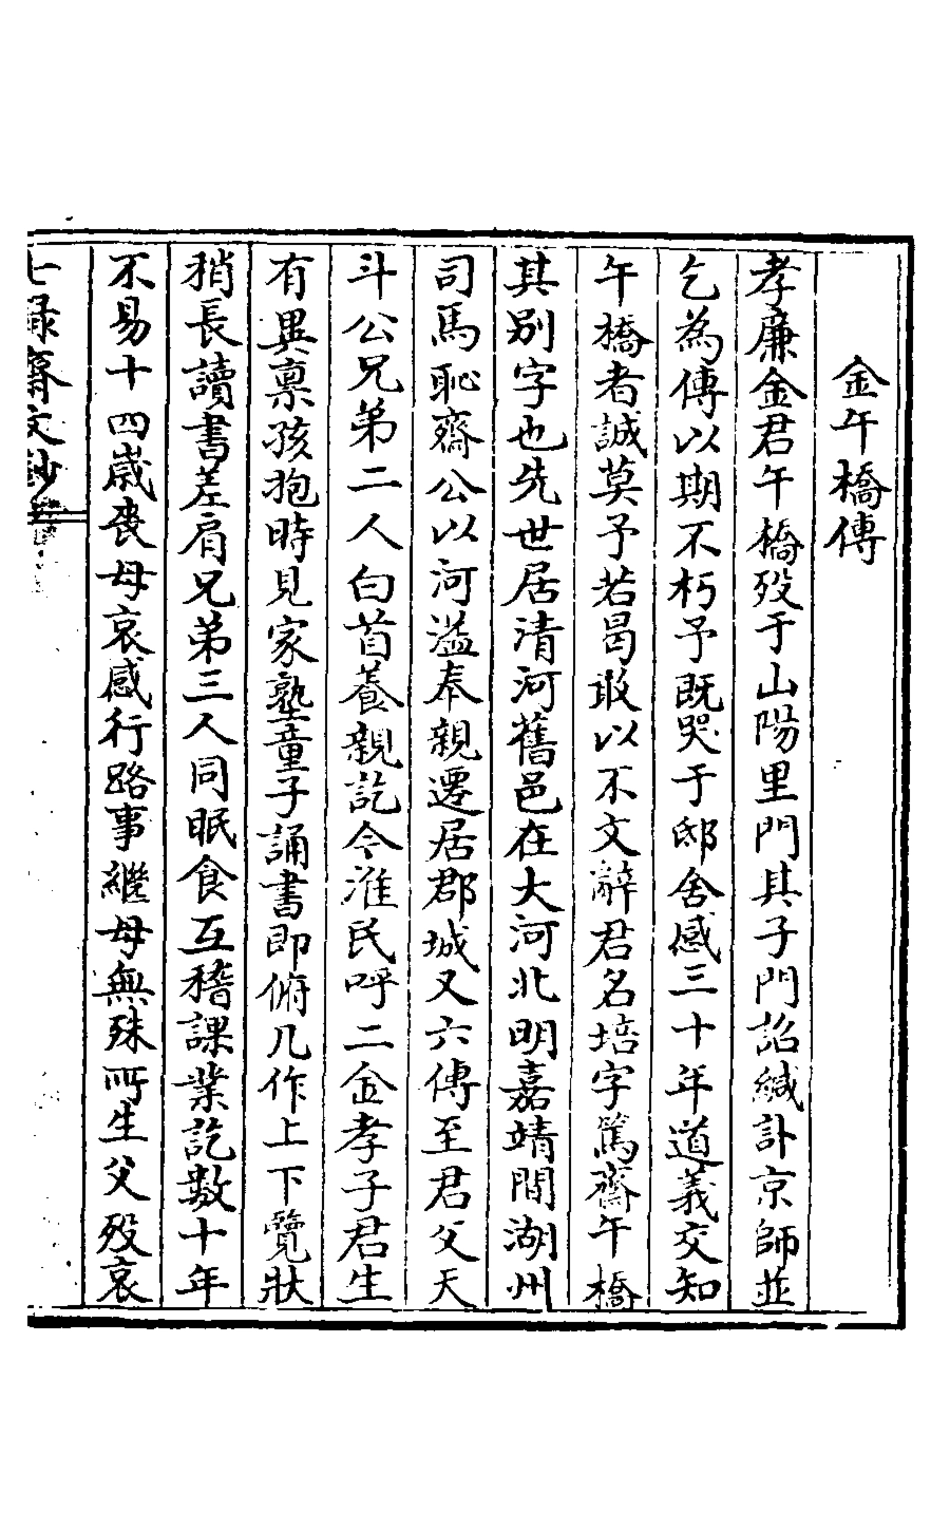 金午橋傳
孝廉金君午橋歿于山陽里門其子門詒緘訃京師並
乞為傳以期不朽予既哭于邸舍感三十年道義交知
午橋者誠莫予若曷敢以不文辭君名培字篤齋午橋
其別字也先世居清河舊邑在大河北明嘉靖間湖州
司馬恥齋公以河溢奉親遷居郡城又六傳至君父天
斗公兄弟二人白首養親訖今淮民呼二金孝子君生
有異稟孩抱時見家塾童子誦書即俯几作上下覽狀
稍長讀書差肩兄弟三人同眠食互稽課業訖數十年
不易十四歲喪母哀感行路事繼母無殊所生父歿哀
七録齋文鈔